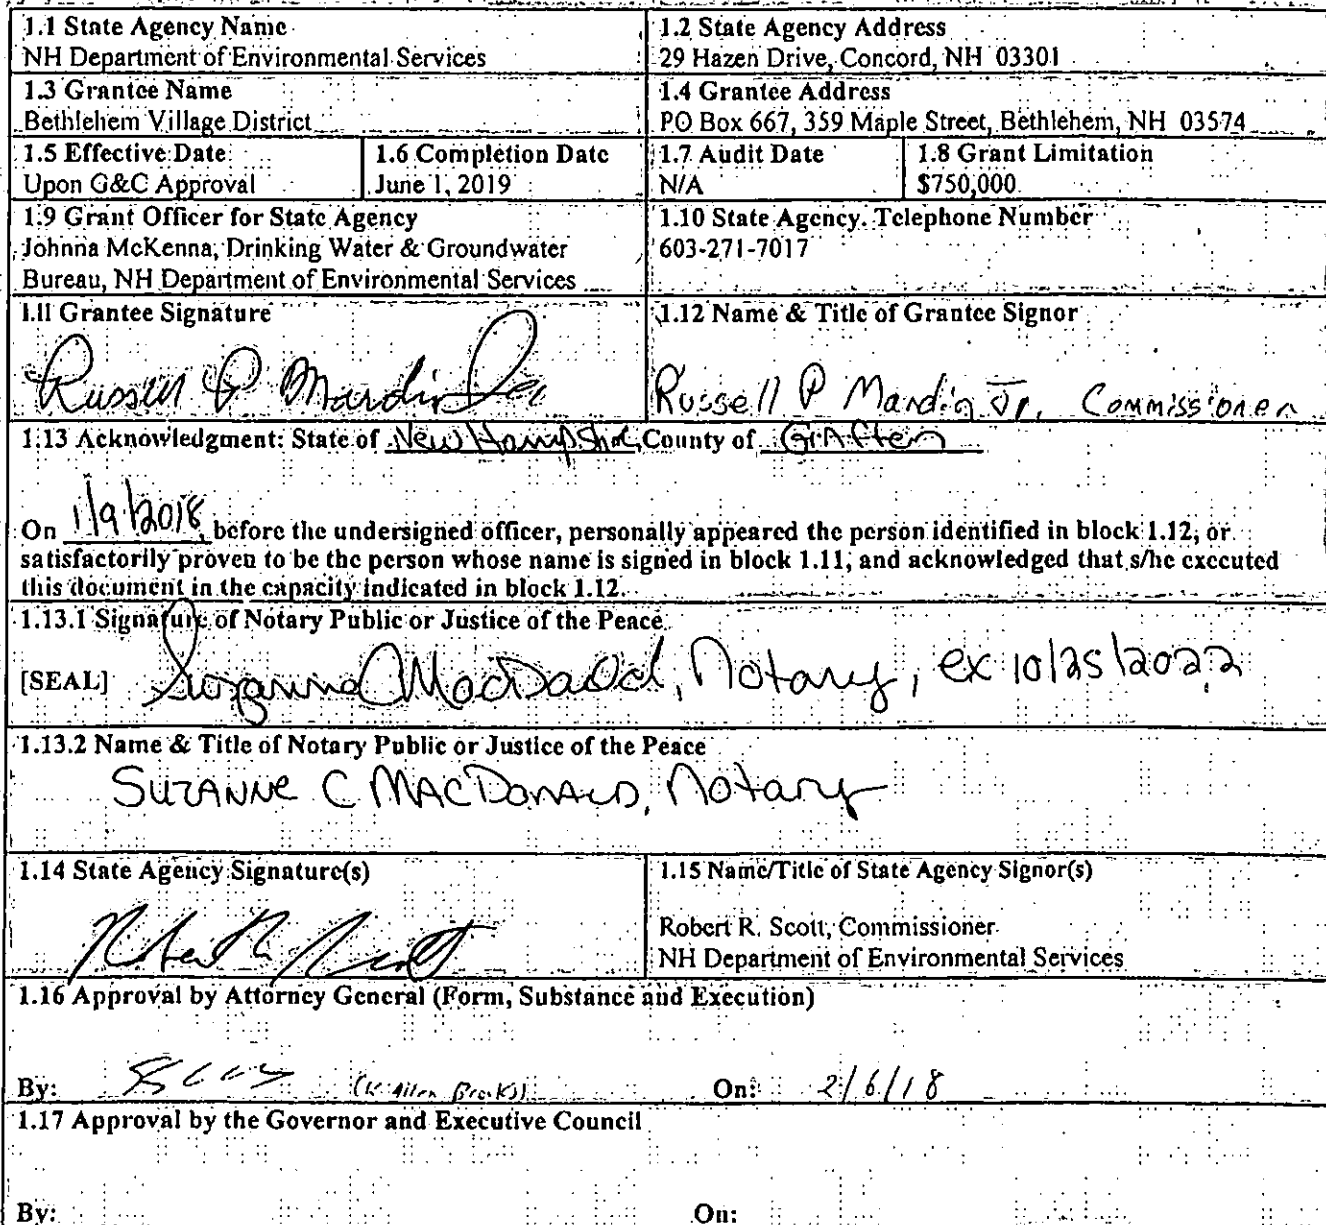 1.1 State Agency Name
NH Department of Environmental Services
1.2 State Agency Address
29 Hazen Drive, Concord, NH 03301
1.3 Grantee Name
Bethlehem Village District
1.4 Grantee Address
PO Box 667, 359 Maple Street, Bethlehem, NH 03574
1.5 Effective Date
Upon G&C Approval
1.6 Completion Date
June 1, 2019
1.7 Audit Date
N/A
1.8 Grant Limitation
$750,000
1.9 Grant Officer for State Agency
Johnna McKenna, Drinking Water & Groundwater
Bureau, NH Department of Environmental Services
1.10 State Agency Telephone Number
603-271-7017
1.11 Grantee Signature
Russell P Mardin Jr
1.12 Name & Title of Grantee Signor
Russell P Mardin Jr, Commissioner
1.13 Acknowledgment: State of New Hampshire, County of Grafton
On 1/9/2018, before the undersigned officer, personally appeared the person identified in block 1.12, or
satisfactorily proven to be the person whose name is signed in block 1.11, and acknowledged that s/he executed
this document in the capacity indicated in block 1.12.
1.13.1 Signature of Notary Public or Justice of the Peace
[SEAL] Suzanne C MacDonald, Notary, ex 10/25/2022
1.13.2 Name & Title of Notary Public or Justice of the Peace
Suzanne C MacDonald, Notary
1.14 State Agency Signature(s)
1.15 Name/Title of State Agency Signor(s)
Robert R. Scott, Commissioner
NH Department of Environmental Services
1.16 Approval by Attorney General (Form, Substance and Execution)
By: (K. Allen Brooks) On: 2/6/18
1.17 Approval by the Governor and Executive Council
By: On: